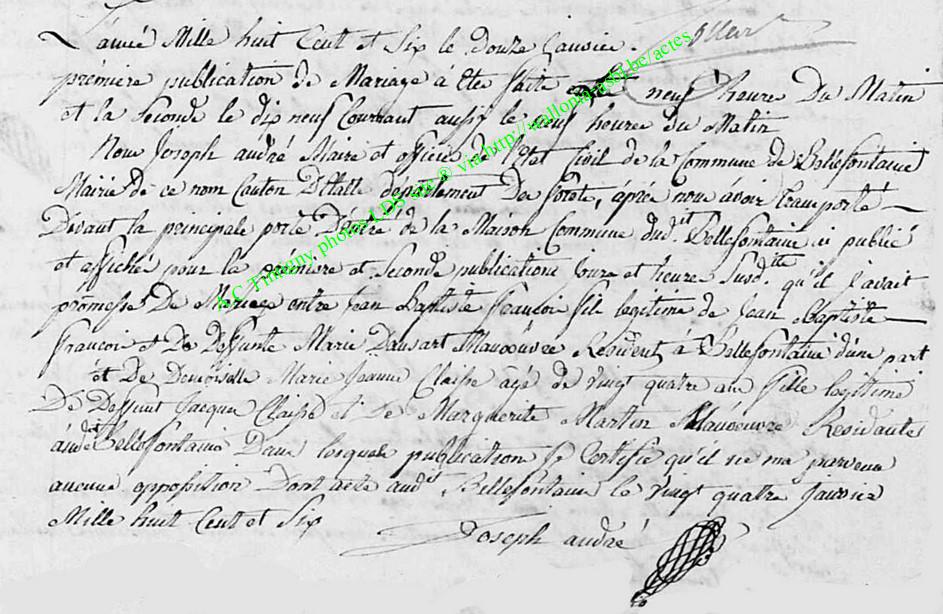 L'anné Mille huit Cent et Six le douze Janvier.
première publication de Mariage à Ete faitte neuf heure Du Matin
et la Seconde le dix neuf Courrant aussy le neuf heure du Matin
Nous Joseph andré Maire et officié de l'Etat Civil de la Commune de Bellefontaine
Mairie de ce nom Canton D'Etalle departement Des forets, après nous avoir transporté
Devant la principale porte D'Entré de la Maison Commune dudit Bellefontaine ici publié
et affiché pour la première et Seconde publications Jours et heure Susdite qu'il j'avait
promesse De Mariage entre Jean Baptiste francoi fils legitime de Jean Baptiste
francoi et De Deffunte Marie Dausart Manoeuvre Resident à Bellefontaine d'une part
et De Demoiselle Marie Jeanne Claisse agé de vingt quatre ans fille legitime
De Deffunt Jacque Claisse et de Marguerite Martin Manoeuvre Residantes
audit Bellefontaine Dans lesquels publications Je Certifie qu'il ne ma parvenu
aucune opposition Dont acte audit Bellefontaine le vingt quatre Janvier
Mille huit Cent et Six
Joseph andré
© C. Timmeny photos LDS ® via http://walloniabelgi.be/actes